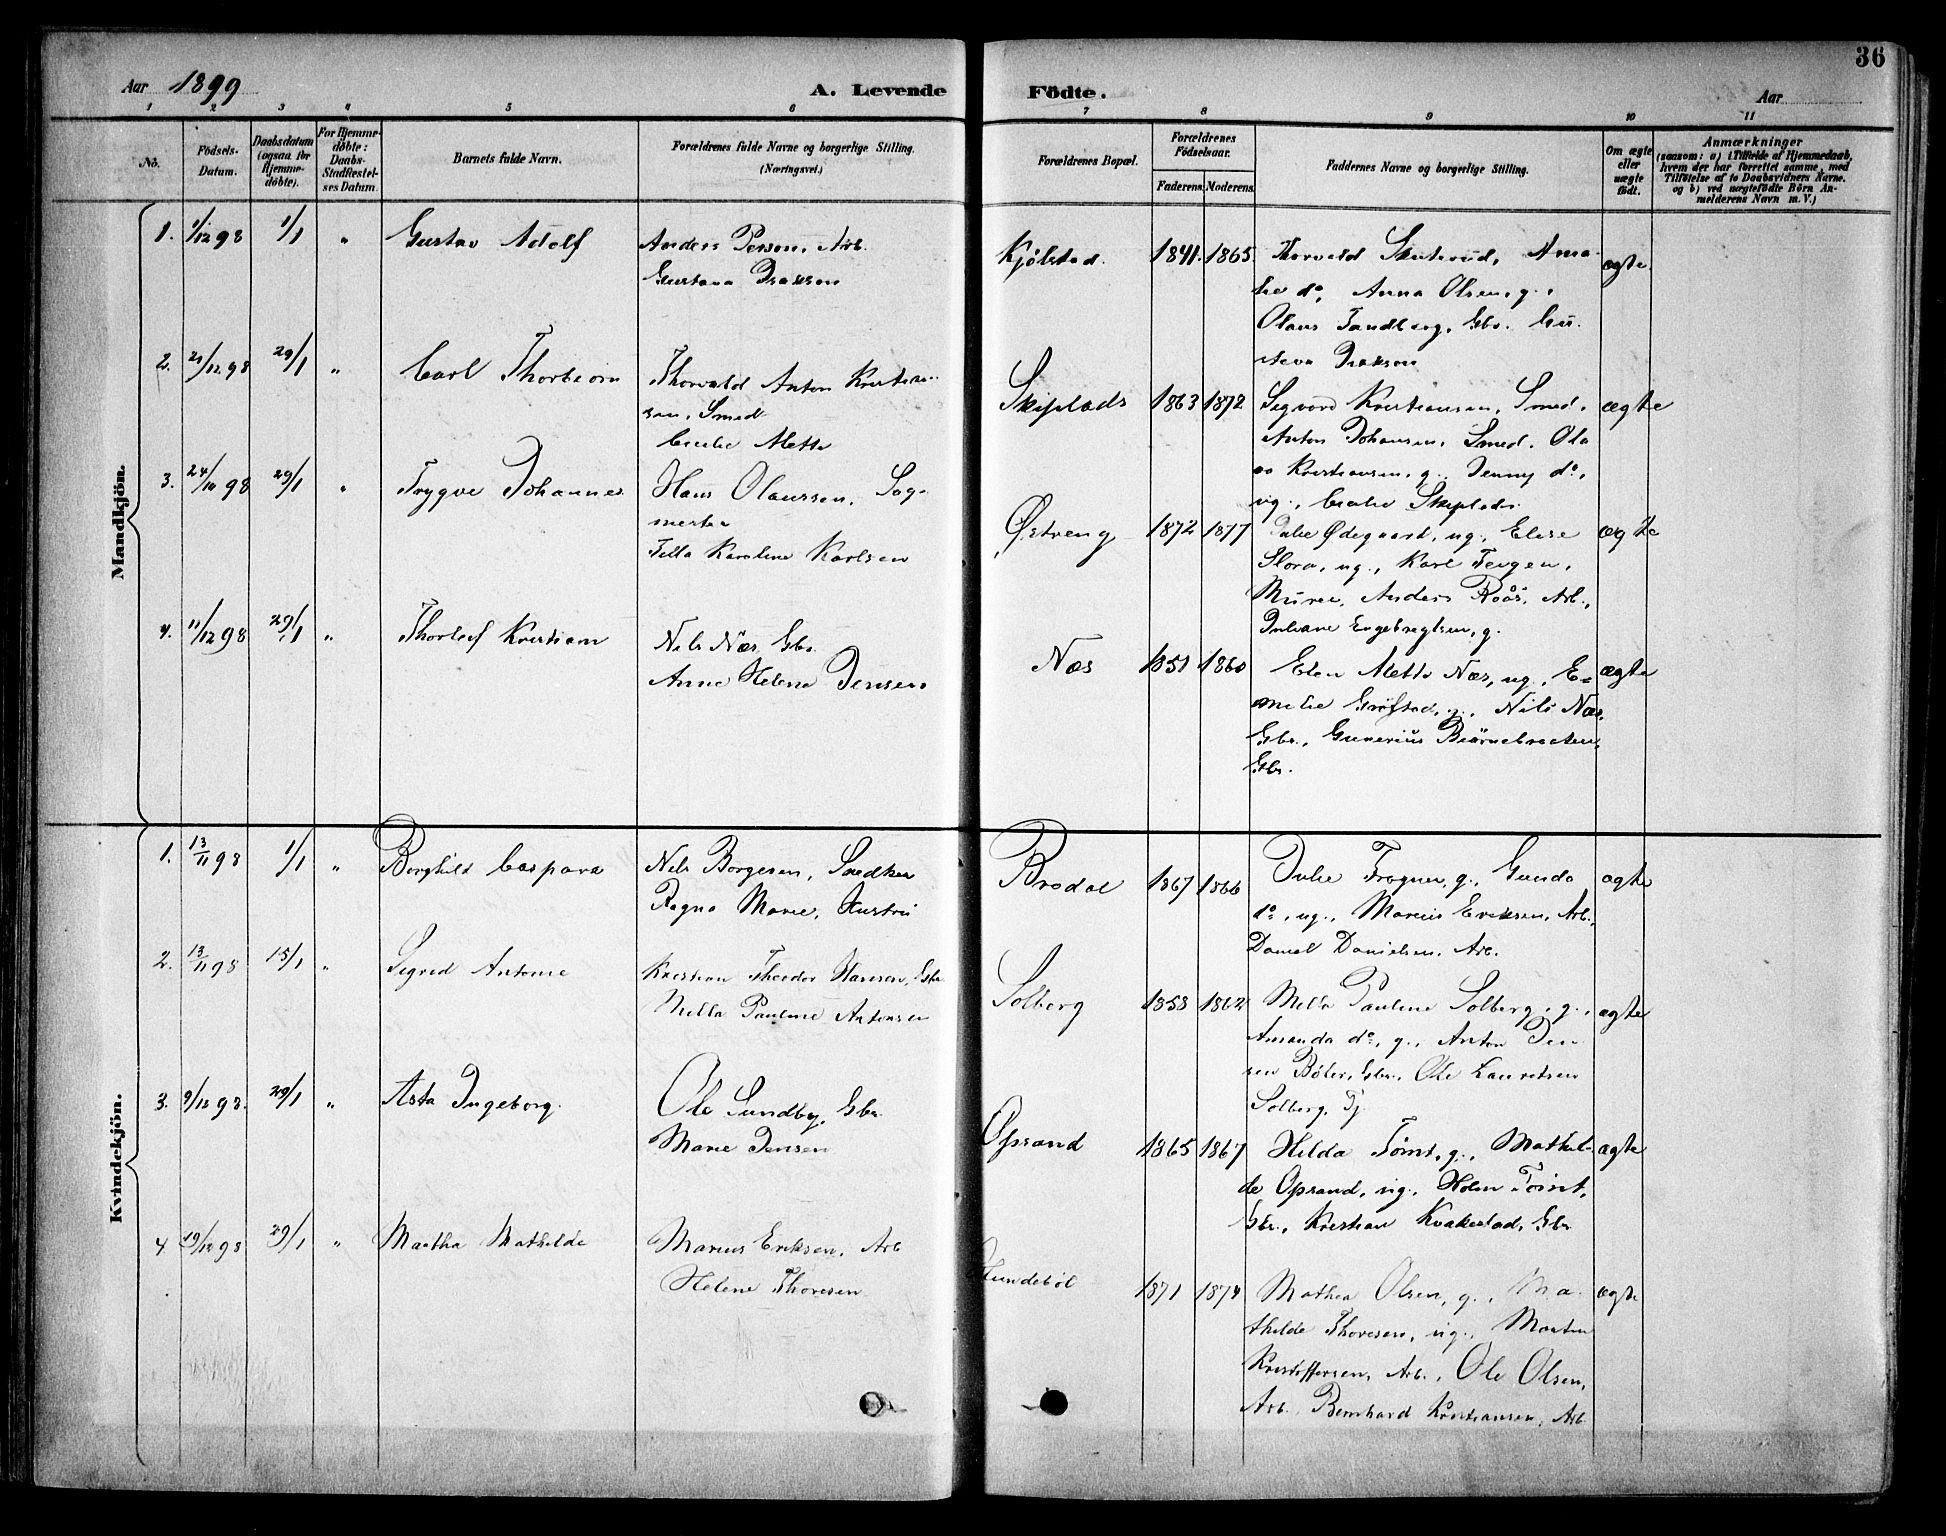 36
Aar 1899
A. Levende Födte.
Aar
1 2 3 4 5 6 7 8 9 10 11
No.
Födsels-
Datum.
Daabsdatum
(ogsaa for
Hjemme-
döbte).
For Hjemme-
döbte:
Daabs-
Stadfæstel-
ses Datum.
Barnets fulde Navn.
Forældrenes fulde Navne og borgerlige Stilling.
(Næringsvei.)
Forældrenes Bopæl.
Forældrenes
Födselsaar.
Faderens. Moderens.
Faddernes Navne og borgerlige Stilling.
Om ægte
eller
uægte
födt.
Anmærkninger
(saasom: a) i Tilfælde af Hjemmedaab,
hvem der har forrettet samme, med
Tilföielse af to Daabsvidners Navne.
og b) ved uægtefödte Börn An-
melderens Navn m. V.)
Mandkjön.
1. 1/12 98 1/1 " Gustav Adolf
Anders Person, Arb.
Gustava Isakson
Kjölstad. 1841. 1865.
Thorvald Skuterud, Ama-
lie do, Anna Olsen, g.,
Olaus Sandberg, Gbr. Gu-
stava Isakson
ægte.
2. 21/12 98 29/1 " Carl Thorbjörn
Thorvald Anton Kristian-
sen, Smed
Cecilie Mette
Skiplads 1863 1872
Sigvard Kristiansen, Smed,
Anton Johansen, Smed. Ola-
va Kristiansen, g., Jenny do,
ug., Cecilie Skiplads.
ægte
3. 24/10 98 29/1 " Trygve Johannes
Hans Olaussen, Sag-
mester
Tilla Karoline Karlsen
Østreng 1872 1877
Julie Ødegaard, ug., Elise
Flora, ug., Karl Teigen,
Murer, Anders Roås, Arb.,
Juliane Engebregtsen, g.
ægte
4. 11/12 98 29/1 " Thorleif Kristian
Nils Næs, Gbr.
Anne Helene Jensen
Næs 1851 1860
Elen Mette Næs, ug., E-
milie Gröfstad, g., Nils Næs,
Gbr., Gunerius Björnebraaten,
Gbr.
ægte
Kvindekjön.
1. 13/11 98 1/1 " Borghild Caspara
Nils Borgesen, Snedker
Ragna Marie, Hustru
Brodal 1867 1866
Julie Frogner, g., Gunda
do, ug., Marius Eriksen, Arb.,
Daniel Danielsen, Arb.
ægte
2. 13/11 98 15/1 " Sigrid Antonie
Kristian Theodor Hansen, Gbr.
Milla Pauline Antonsen
Solberg 1858 1862
Milla Pauline Solberg, g.,
Amanda do, g., Anton Jen-
sen Böler, Gbr., Ole Lauritsen
Solberg, Tj.
ægte
3. 9/12 98. 29/1 " Asta Ingeborg.
Ole Sundby, Gbr.
Marie Jensen
Opsand 1865 1867
Hilda Tömt, g., Mathil-
de Opsand, ug., Holm Tömt,
Gbr., Kristian Kvakestad, Gbr.
ægte
4 19/12 98 29/1 " Martha Mathilde
Marius Eriksen, Arb
Helene Thoresen
Hundeböl 1871 1874
Mathea Olsen, g., Ma-
thilde Thoresen, ug., Morten
Kristoffersen, Arb., Ole Olsen,
Arb. Bernhard Kristiansen, Arb.
ægte